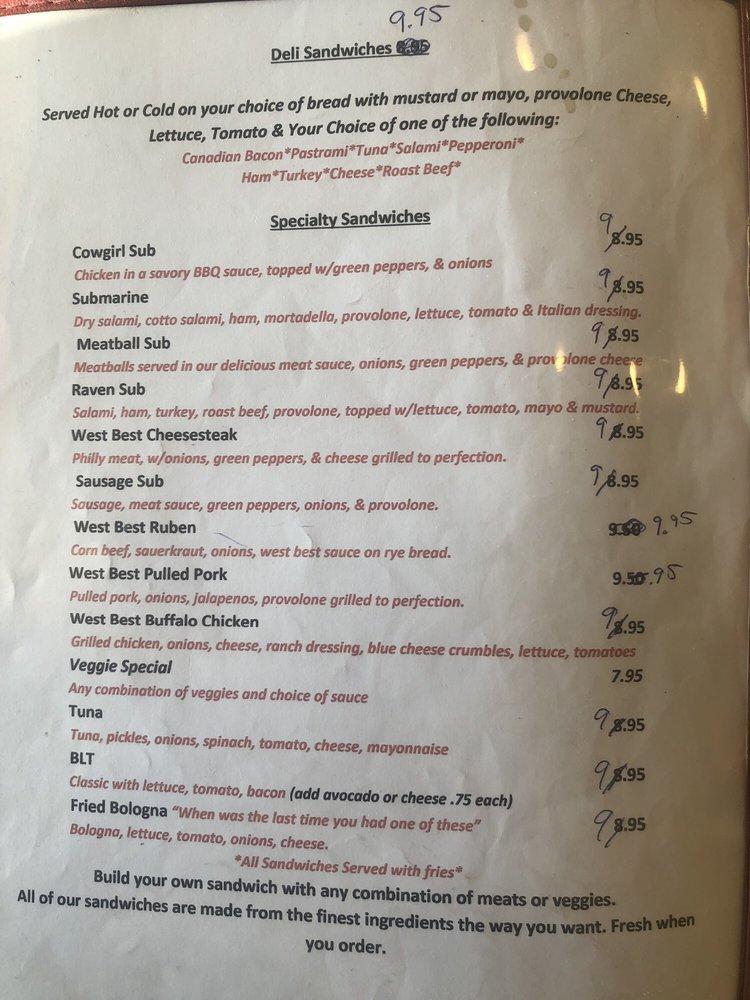 9.95
Deli Sandwiches
Served Hot or Cold on your choice of bread with mustard or mayo, provolone Cheese,
Lettuce, Tomato & Your Choice of one of the following:
Canadian Bacon*Pastrami*Tuna*Salami*Pepperoni*
Ham*Turkey*Cheese*Roast Beef*
Specialty Sandwiches
Cowgirl Sub 9 8.95
Chicken in a savory BBQ sauce, topped w/green peppers, & onions
Submarine 9 8.95
Dry salami, cotto salami, ham, mortadella, provolone, lettuce, tomato & Italian dressing.
Meatball Sub 9 8.95
Meatballs served in our delicious meat sauce, onions, green peppers, & provolone cheese
Raven Sub 9 8.95
Salami, ham, turkey, roast beef, provolone, topped w/lettuce, tomato, mayo & mustard.
West Best Cheesesteak 9 8.95
Philly meat, w/onions, green peppers, & cheese grilled to perfection.
Sausage Sub 9 8.95
Sausage, meat sauce, green peppers, onions, & provolone.
West Best Ruben 9.50 9.95
Corn beef, sauerkraut, onions, west best sauce on rye bread.
West Best Pulled Pork 9.50 .95
Pulled pork, onions, jalapenos, provolone grilled to perfection.
West Best Buffalo Chicken 9 8.95
Grilled chicken, onions, cheese, ranch dressing, blue cheese crumbles, lettuce, tomatoes
Veggie Special 7.95
Any combination of veggies and choice of sauce
Tuna 9 8.95
Tuna, pickles, onions, spinach, tomato, cheese, mayonnaise
BLT 9 8.95
Classic with lettuce, tomato, bacon (add avocado or cheese .75 each)
Fried Bologna "When was the last time you had one of these" 9 8.95
Bologna, lettuce, tomato, onions, cheese.
*All Sandwiches Served with fries*
Build your own sandwich with any combination of meats or veggies.
All of our sandwiches are made from the finest ingredients the way you want. Fresh when
you order.